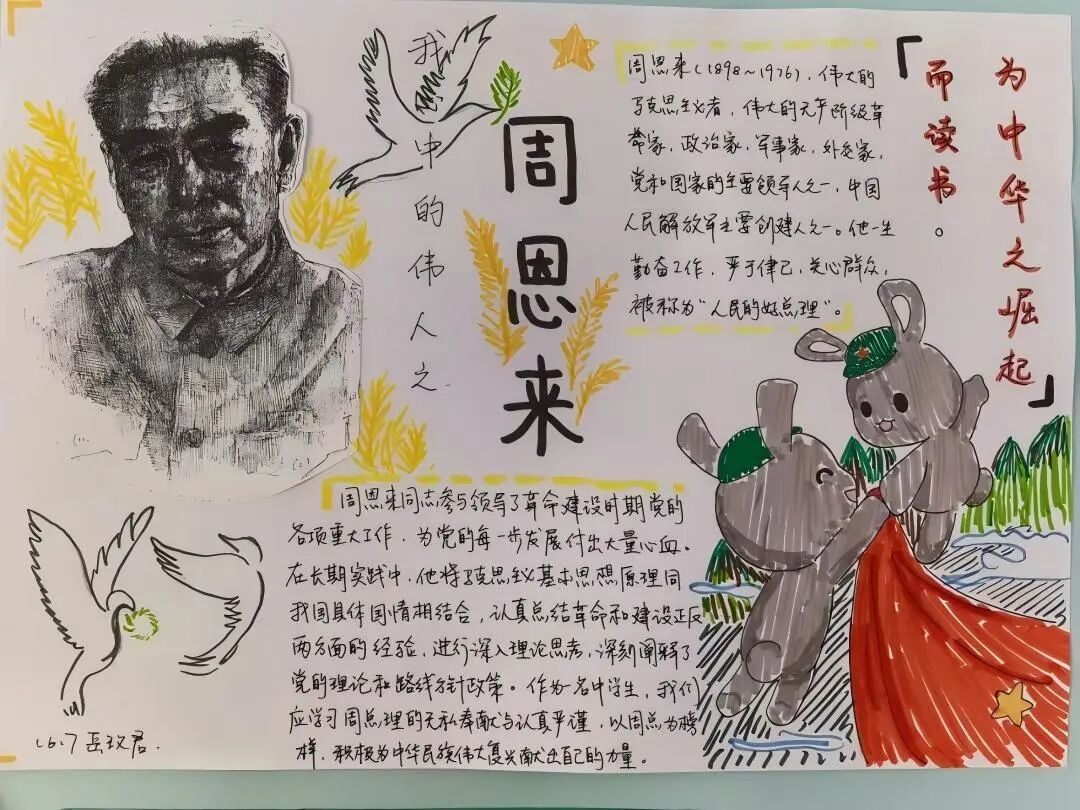 我
心
中
的
伟
人
之
周
恩
来
周恩来(1898~1976),伟大的
马克思主义者,伟大的无产阶级革
命家,政治家,军事家,外交家,
党和国家的主要领导人之一,中国
人民解放军主要创建人之一。他一生
勤奋工作,严于律己,关心群众,
被称为“人民的好总理”。
「为中华之崛起
而读书。」
周恩来同志参与领导了革命建设时期党的
各项重大工作,为党的每一步发展付出大量心血。
在长期实践中,他将马克思主义基本思想原理同
我国具体国情相结合,认真总结革命和建设正反
两方面的经验,进行深入理论思考,深刻阐释了
党的理论和路线方针政策。作为一名中学生,我们
应学习周总理的无私奉献与认真严谨,以周总为榜
样,积极为中华民族伟大复兴献出自己的力量。